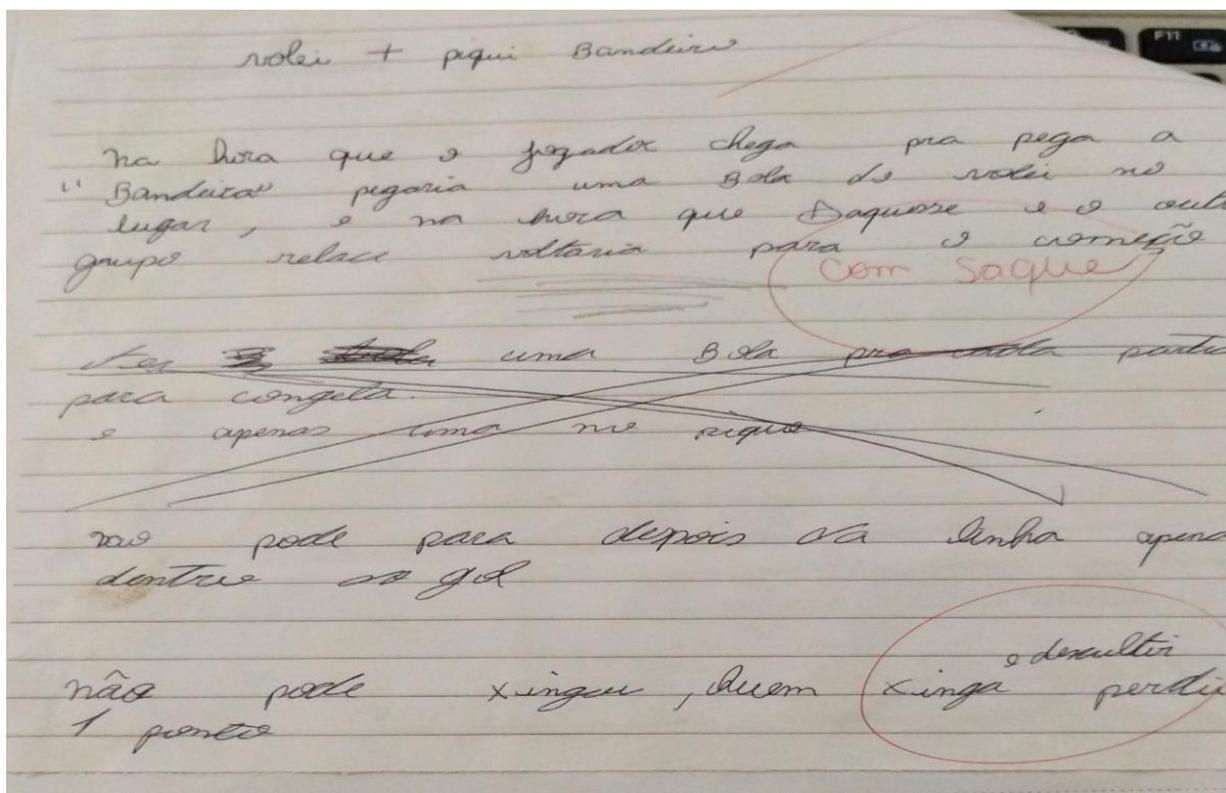 volei + piqui Bandeira
na hora que o jogador chega pra pega a
"Bandeira" pegaria uma Bola de volei no
lugar, e na hora que saquasse e o outr
grupo relace voltaria para o começo
com saque
uma Bola pra cada partid
para congela.
e apenas uma no pique
nao pode para depois da linha apena
dentro do gol
e descultir
não pode xingar, quem xinga perdi
1 ponto
F11